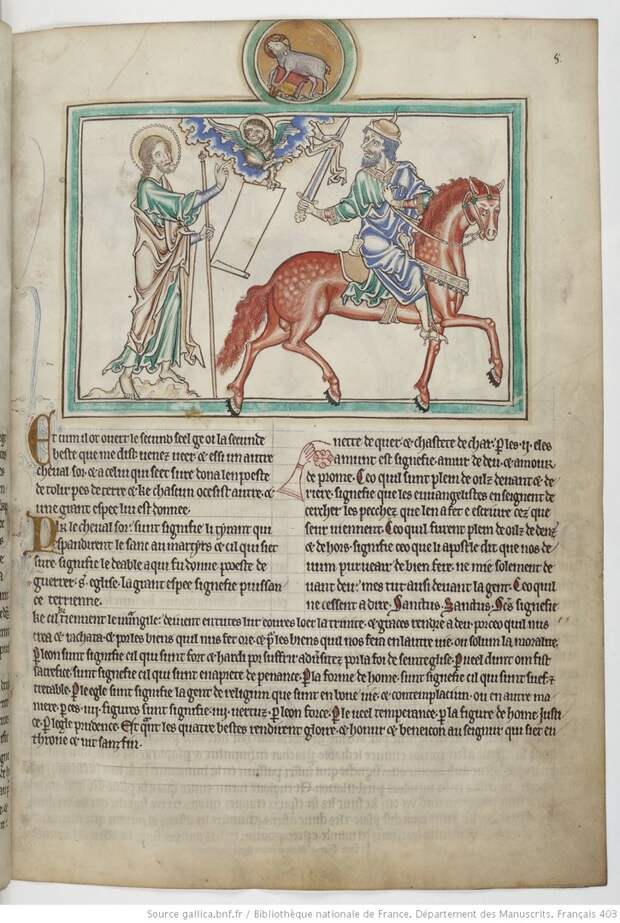 8.
Et cum il ot overt le secund seel ge oi la secunde
beste que me dist venez veer e eissi un autre
cheval sor e a celui qui seet sure dona len poeste
de tolir pes de terre e ke chascun oceist autre e
une grant espee lui est donnee
Par le cheval sor sunt signifie li tyrant qui
espandirent le sanc au martyrs e cil qui siet
sure signifie le deable a qui fu donne poeste de
guerrer s eglise la grant espee signifie puissan
ce terrienne
nette de quer e chastete de char Par les ii eles
amunt est signifie amur de deu e amour
de prome Ceo quil sunt plein de oilz devant e de
riere signifie que les euuangelistes enseignent de
cercher les pecchez que len a fet e eschiver cez que
seur viennent Ceo quil furent plein de oilz de denz
e de hors signifie ceo que li apostle dit que nos de
vum purvear de bien fere ne mie solement de
vant deu mes tut ausi devant la gent Ceo quil
ne cessent a dire Sanctus Sanctus Scs signefie
ke cil tiennent le evangile devent entur lur coures loer la trinite e graces rendre a deu
e por les biens quil nus fet ore e pur les biens quil nus fera en lautre vie
Par leon sunt signifie cil qui sunt fort e hardi por suffrir adversitez por la foi de seint eglise Par veel dunt om fist
sacrefice sunt signifie cil qui sunt en aspre de penance Par la forme de home sunt signifie cil qui sunt
tretable Par le egle sunt signifie la gent de religiun que sunt en bone vie e contemplaciun ou en autre ma
niere par ces iiii figures sunt signifie iiii vertuz Par leon force Par le veel temperance par la figure de home justi
ce par legle prudence Est quant les quatre bestes rendirent gloire e honur e beneicon au seignur qui siet en
throne e vit sanz fin
Source gallica.bnf.fr / Bibliothèque nationale de France. Département des Manuscrits. Français 403